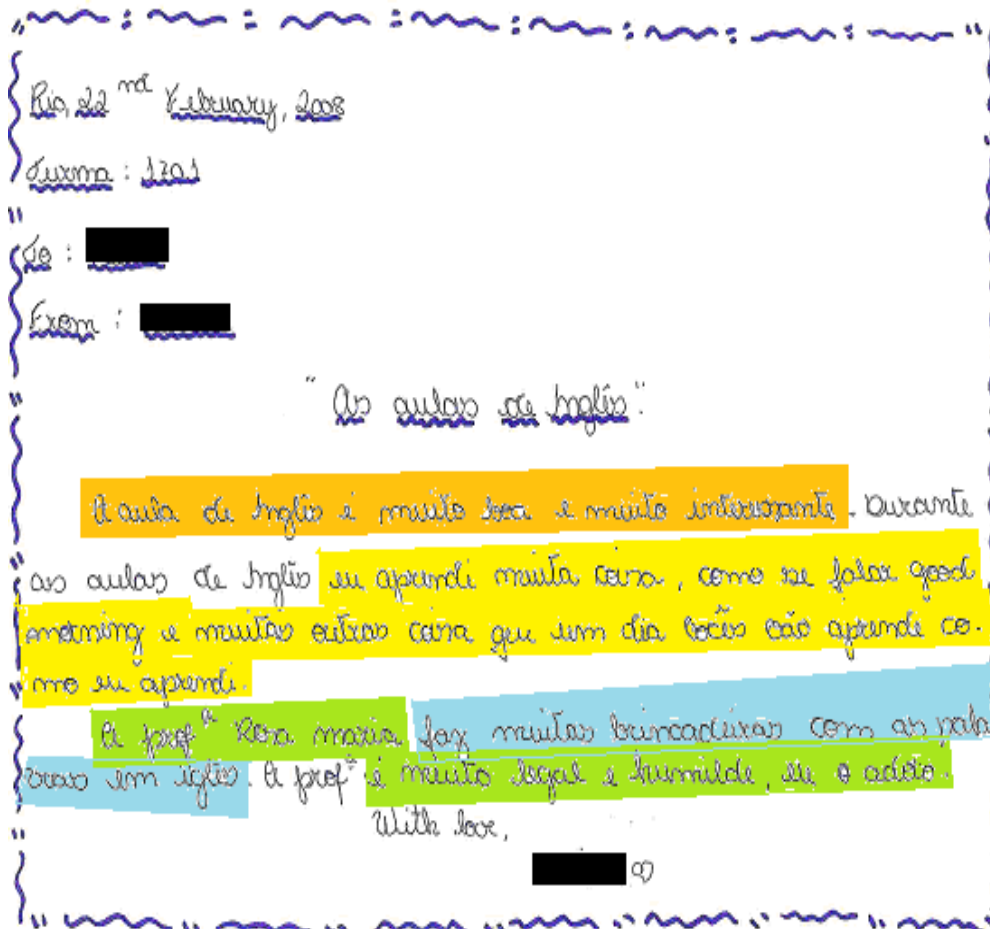 Rio, 22nd February, 2008
Turma : 1701
To :
From :
"As aulas de Inglês".
A aula de Inglês é muito boa e muito interessante. Durante
as aulas de Inglês eu aprendi muita coisa, como se falar good
morning e muitas outras coisa que um dia vocês vão aprende co-
mo eu aprendi.
A profª Rosa maria faz muitas brincadeiras com as pala
vras em iglês. A profª é muito legal e humilde, eu a adoto.
With love,